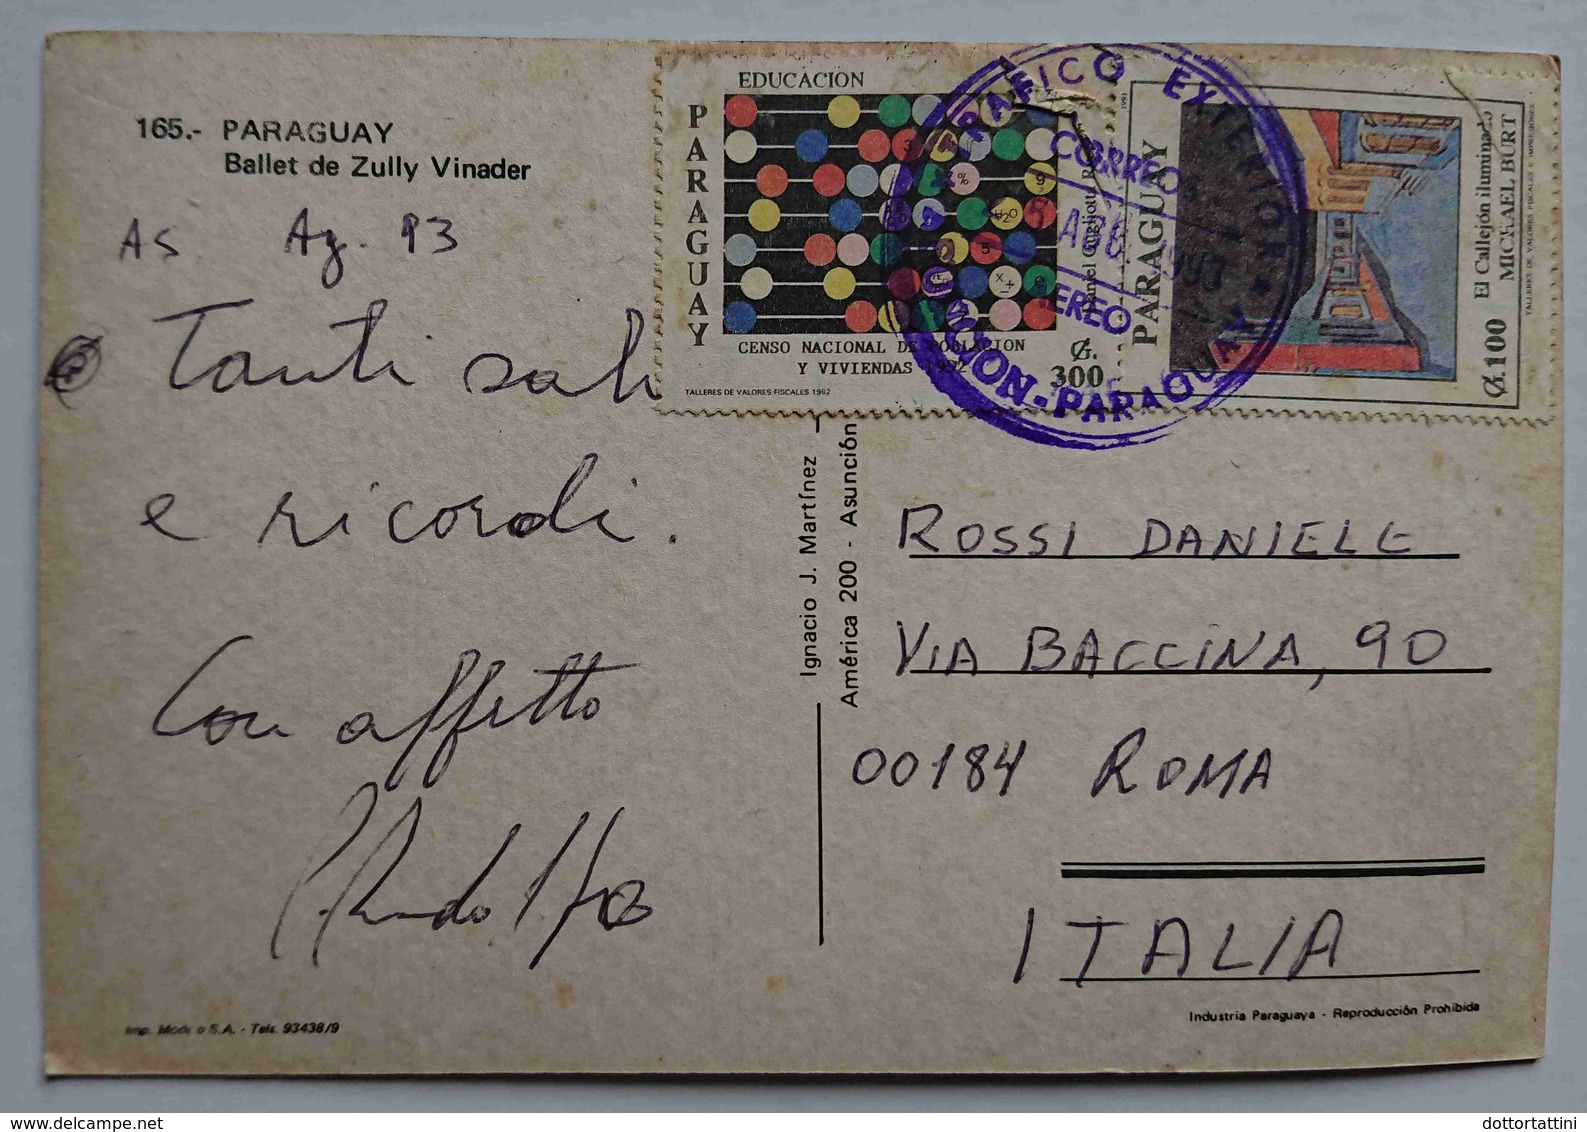 165.- PARAGUAY
Ballet de Zully Vinader
As Ag. 93
Tanti sal
e ricordi.
Con affetto
EDUCACION
PARAGUAY
CENSO NACIONAL DE POBLACION
Y VIVIENDAS 1992
TALLERES DE VALORES FISCALES 1992
₲. 300
1991
PARAGUAY
El Callejón iluminado
MICHAEL BURT
₲.100
TALLERES DE VALORES FISCALES E IMPRESIONES
TRAFICO EXTERIOR
CORREO
AGO 1993
AEREO
ASUNCION - PARAGUAY
Ignacio J. Martínez
América 200 - Asunción
ROSSI DANIELE
VIA BACCINA, 90
00184 ROMA
ITALIA
Imp. Modelo S.A. - Tels. 93438/9
Industria Paraguaya - Reproducción Prohibida
dottortattini